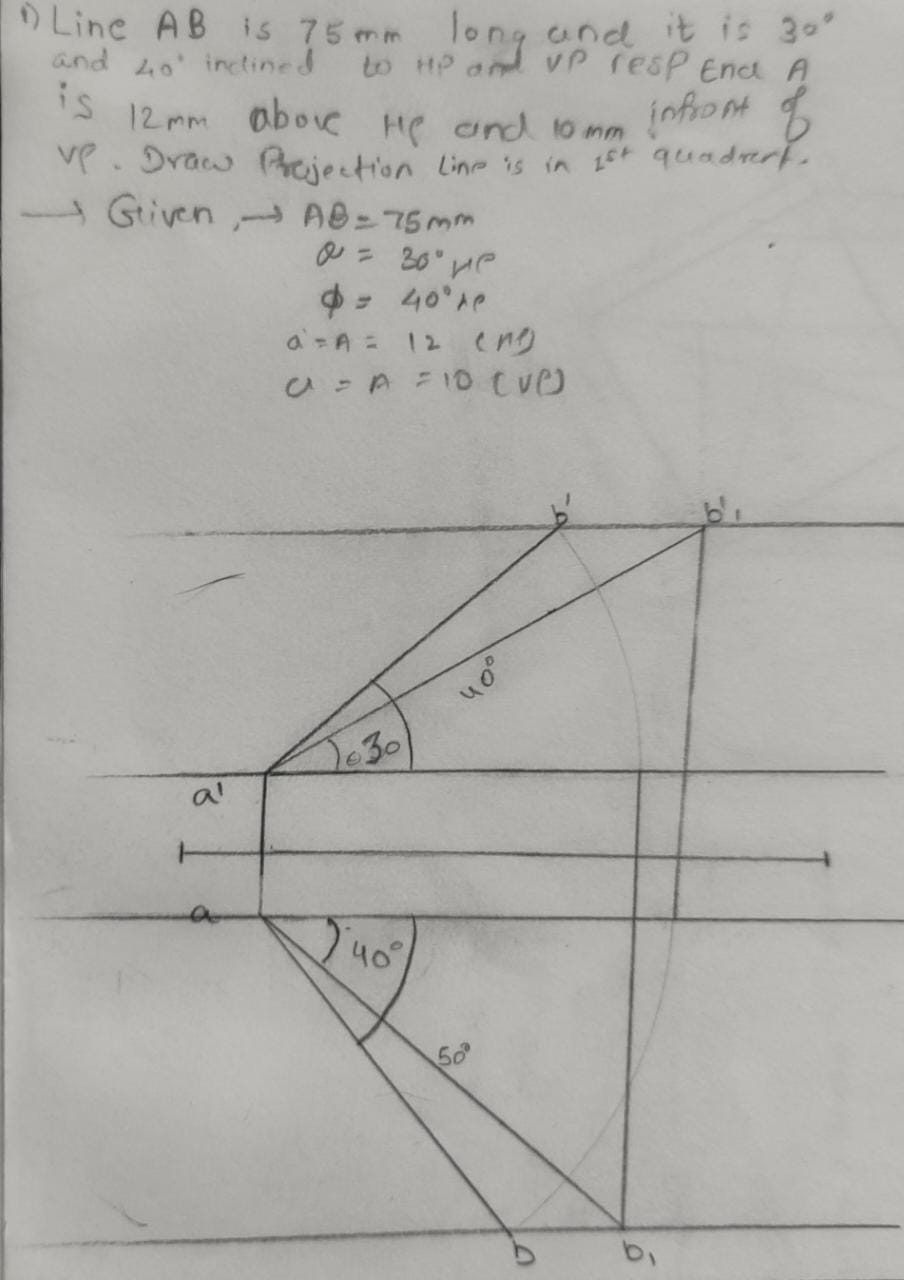 1) Line AB is 75mm long and it is 30°
and 40° inclined to HP and VP resp End A
is 12mm above HP and 10mm infront of
VP. Draw Projection Line is in 1st quadrent.
→ Given, → AB = 75mm
= 30° HP
ϕ = 40°
a' = A = 12
a = A = 10 (VP)
b' b'₁
40°
30
a'
a
40°
50°
b b₁